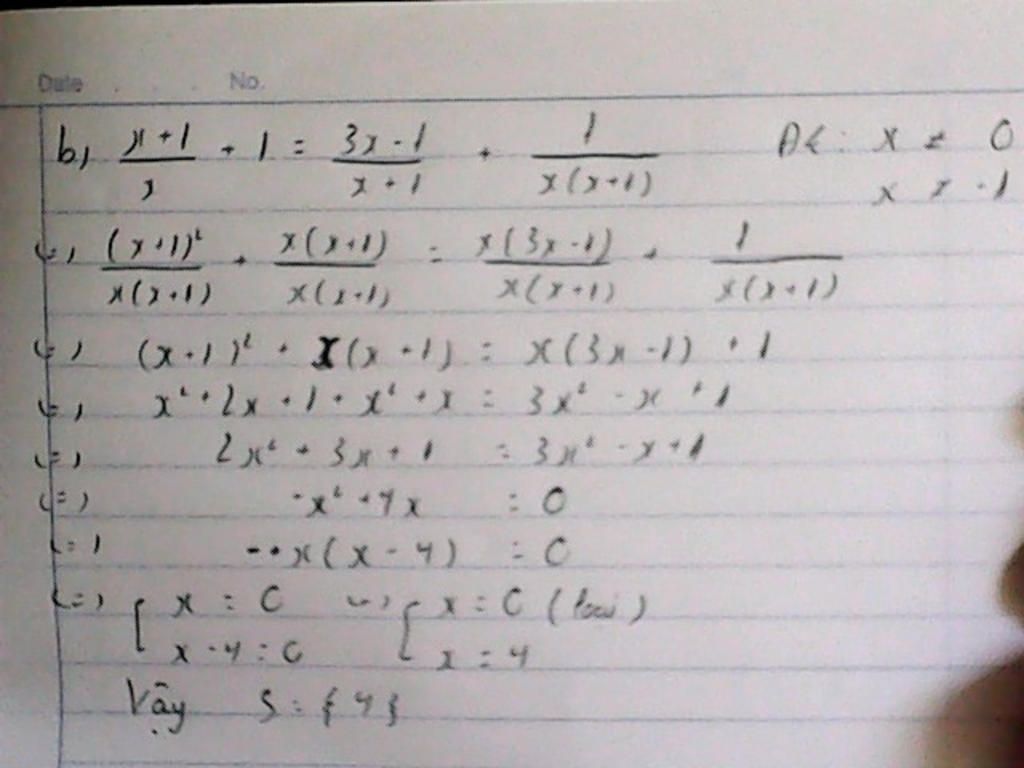 Date . . . No.
b) \frac{x+1}{x} + 1 = \frac{3x-1}{x+1} + \frac{1}{x(x+1)} ĐK: x ≠ 0
x ≠ -1
<=> \frac{(x+1)²}{x(x+1)} + \frac{x(x+1)}{x(x+1)} = \frac{x(3x-1)}{x(x+1)} + \frac{1}{x(x+1)}
<=> (x+1)² + x(x+1) = x(3x-1) + 1
<=> x² + 2x + 1 + x² + x = 3x² - x + 1
<=> 2x² + 3x + 1 = 3x² - x + 1
<=> -x² + 4x = 0
<=> -x(x-4) = 0
<=> [ x = 0 <=> [ x = 0 (loại)
x-4 = 0 x = 4
Vậy S = {4}